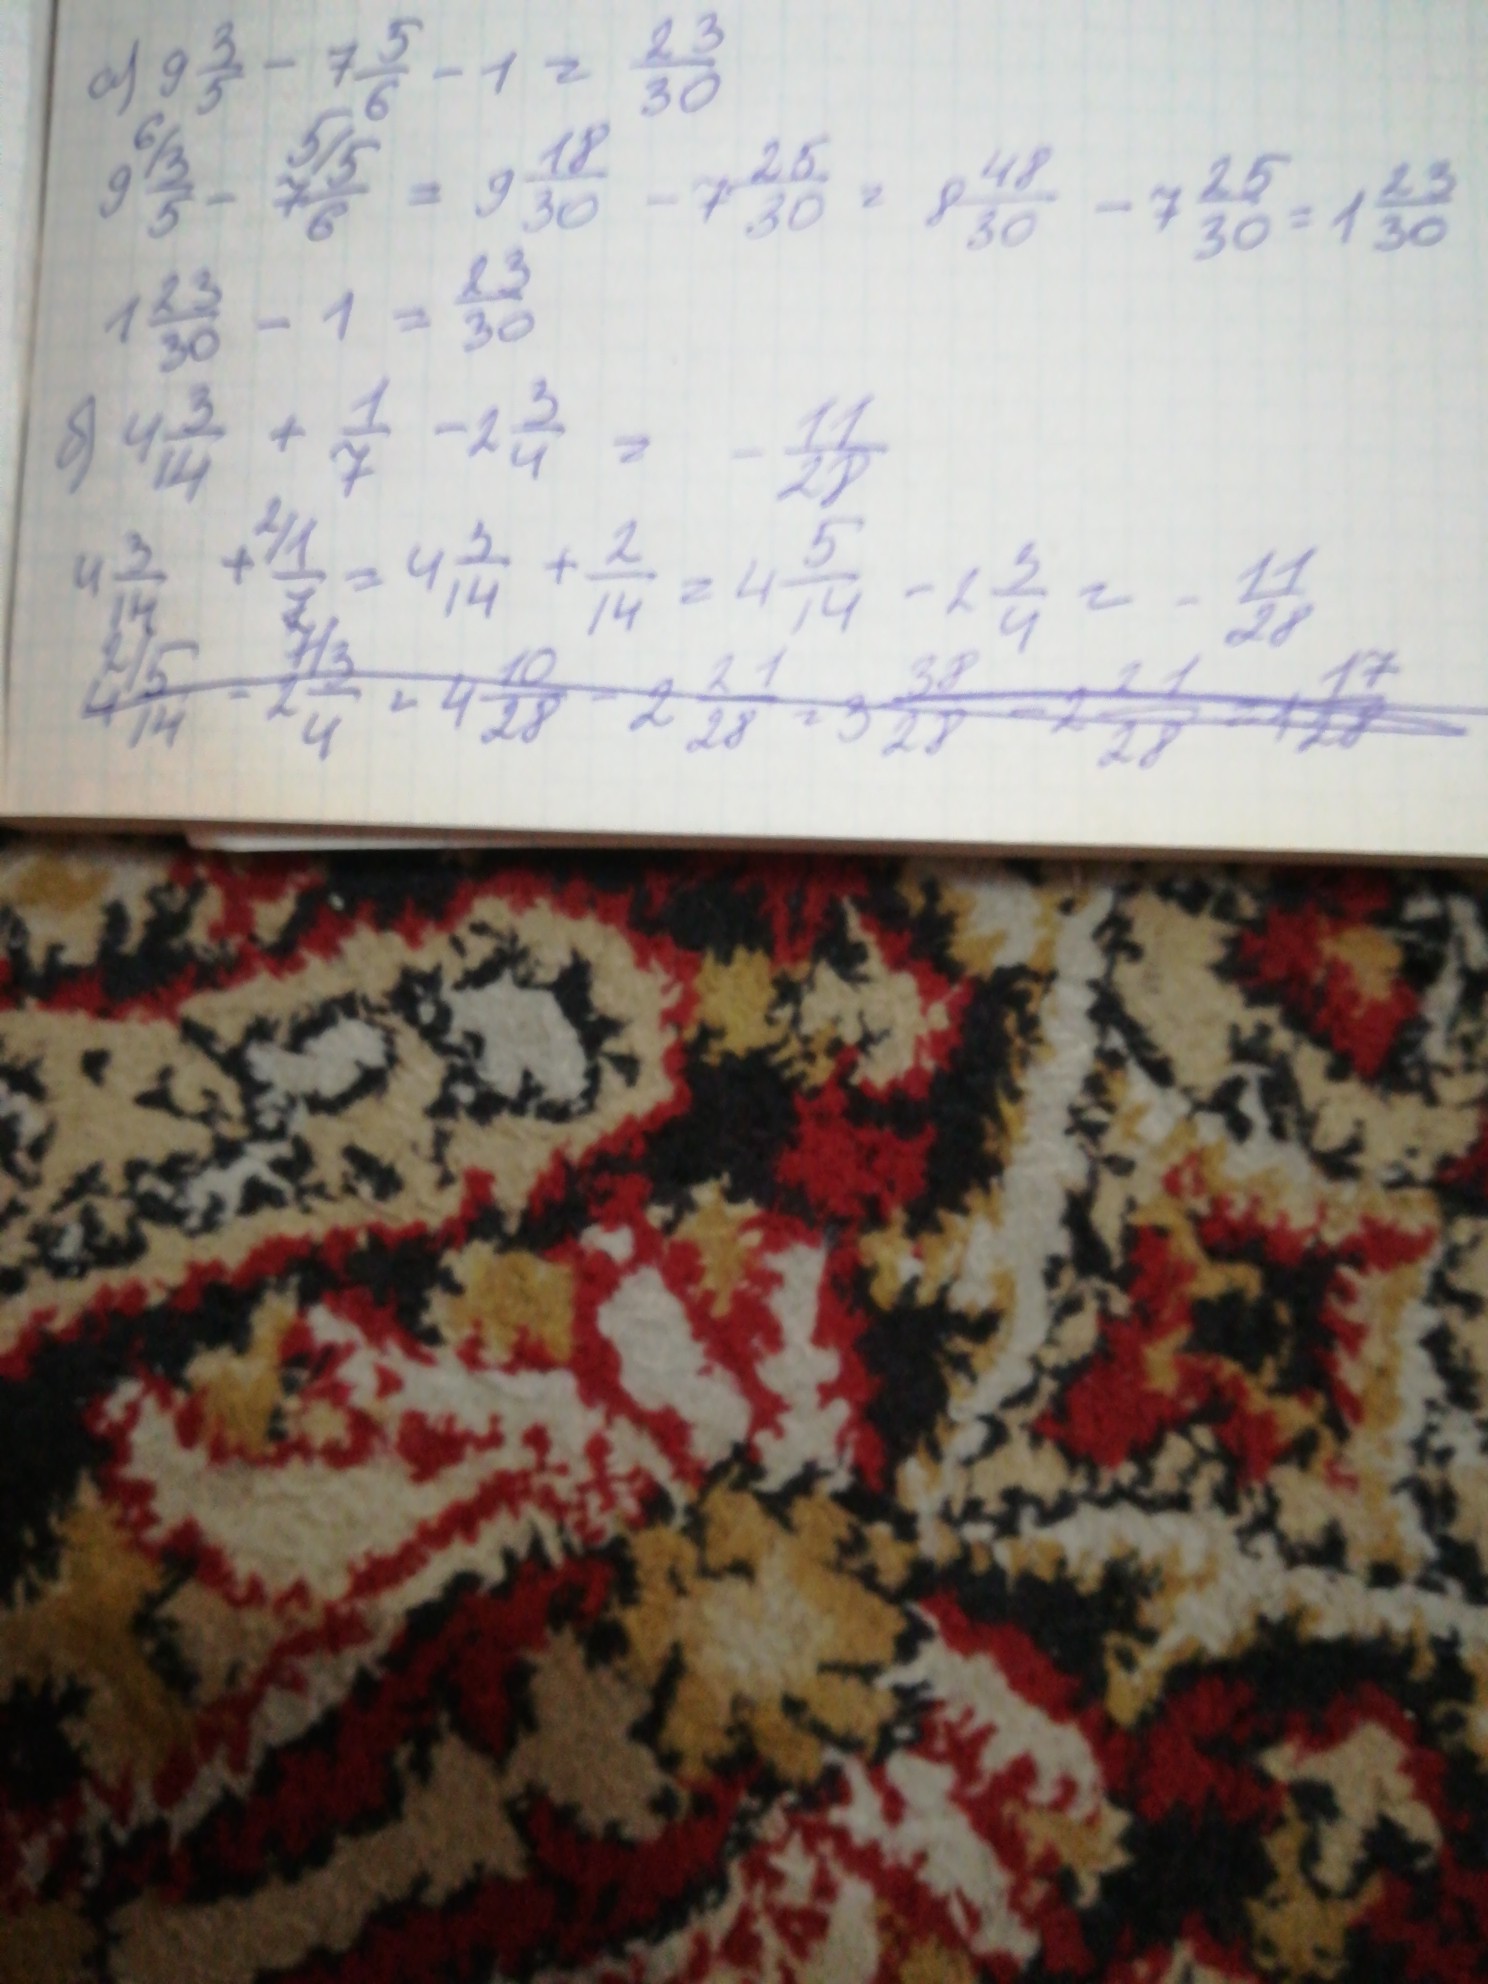 а) 9 3/5 - 7 5/6 - 1 = 23/30
9 6/3/5 - 7 5/5/6 = 9 18/30 - 7 25/30 = 8 48/30 - 7 25/30 = 1 23/30
1 23/30 - 1 = 23/30
б) 4 3/14 + 1/7 - 2 3/4 = - 11/28
4 3/14 + 2/1/7 = 4 3/14 + 2/14 = 4 5/14 - 2 3/4 = - 11/28
4 2/5/14 - 2 7/3/4 = 4 10/28 - 2 21/28 = 3 38/28 - 2 21/28 = 1 17/28